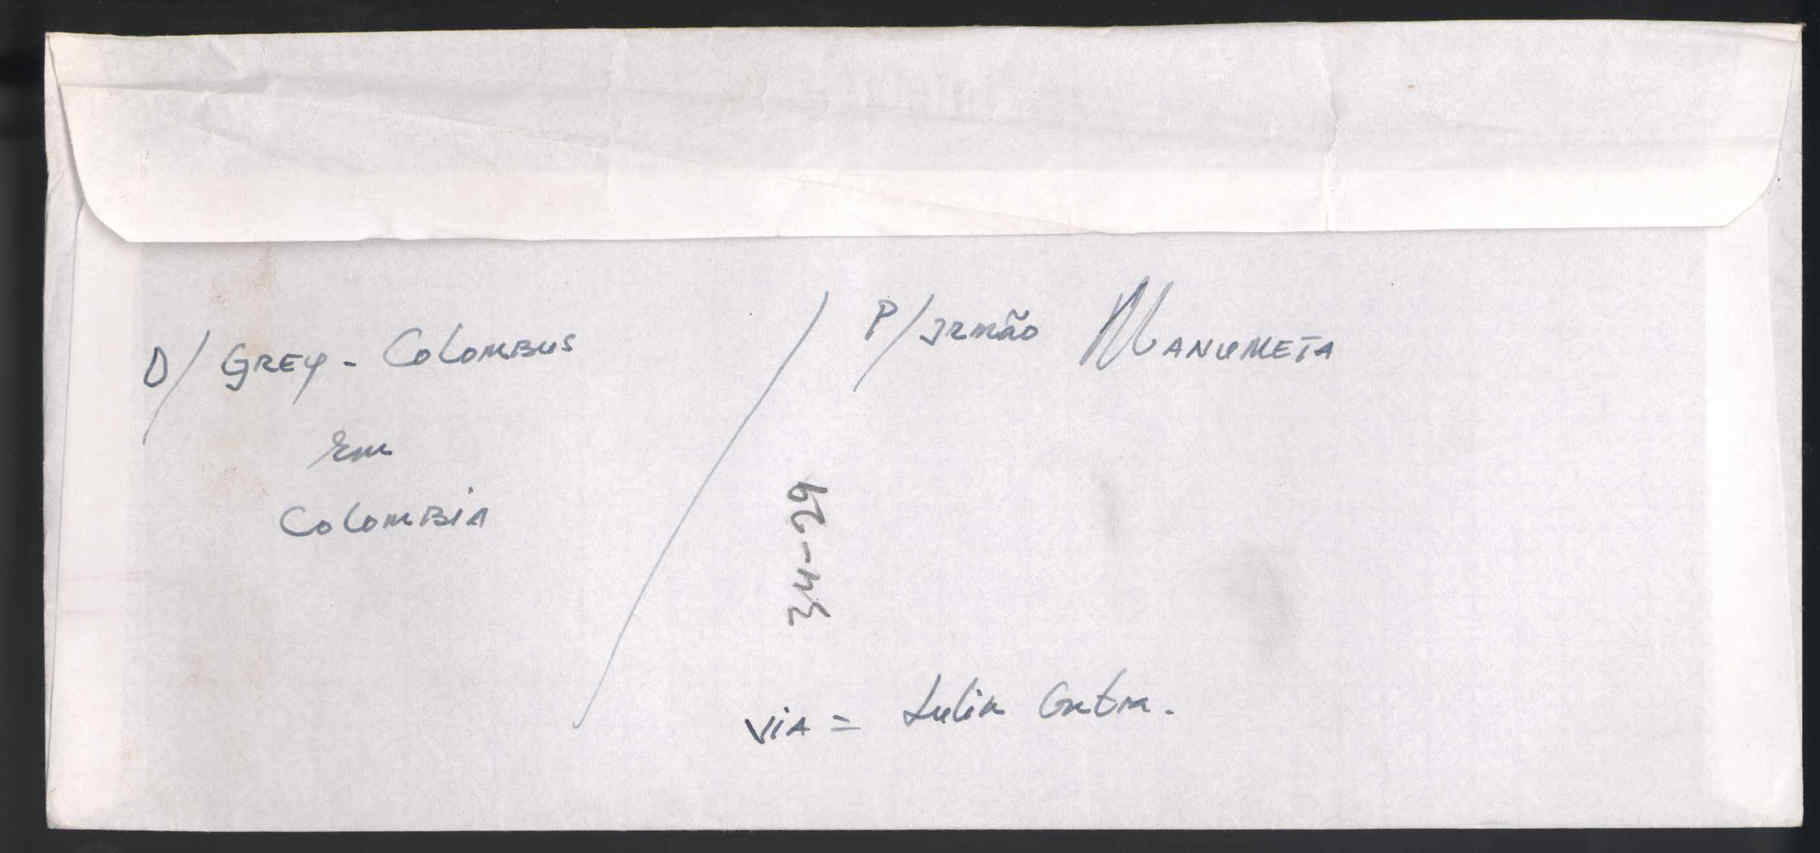 D/ GREY - COLOMBUS
P/ IRMÃO MANUMETA
Em
COLOMBIA
34-29
VIA =